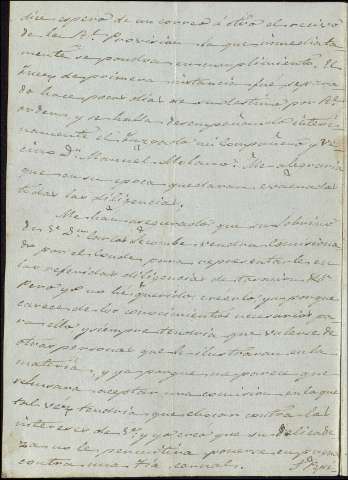 dice espero de un correo á otro el recivo
de la Rl. Provision la que inmediata
mente se pondrá en cumplimiento. El
Juez de primera instancia fué separa
do hace pocos dias de su destino por Rl.
orden, y se halla desempeñando interi
namente el Juzgado mi compañero y ve
cino Dn. Manuel Molano. Me alegraria
que en su epoca quedaran evacuadas
todas las diligencias.
Me han asegurado que su sobrino
de V. Dn. Carlos vendra comisiona
do por el Conde para representarle en
las referidas diligencias de
Pero yo no he querido creerlo, ya porque
carece de los conocimientos necesarios pa
ra ello y siempre tendria que valerse de
otras personas que le ilustraran en la
materia, y ya porque me parece que
rehusara aceptar una comision en la que
tal vez tendria que chocar contra los
intereses de V. y yo creo que su delicade
za no le permitira ponerse en pugna
contra una Tia carnal.